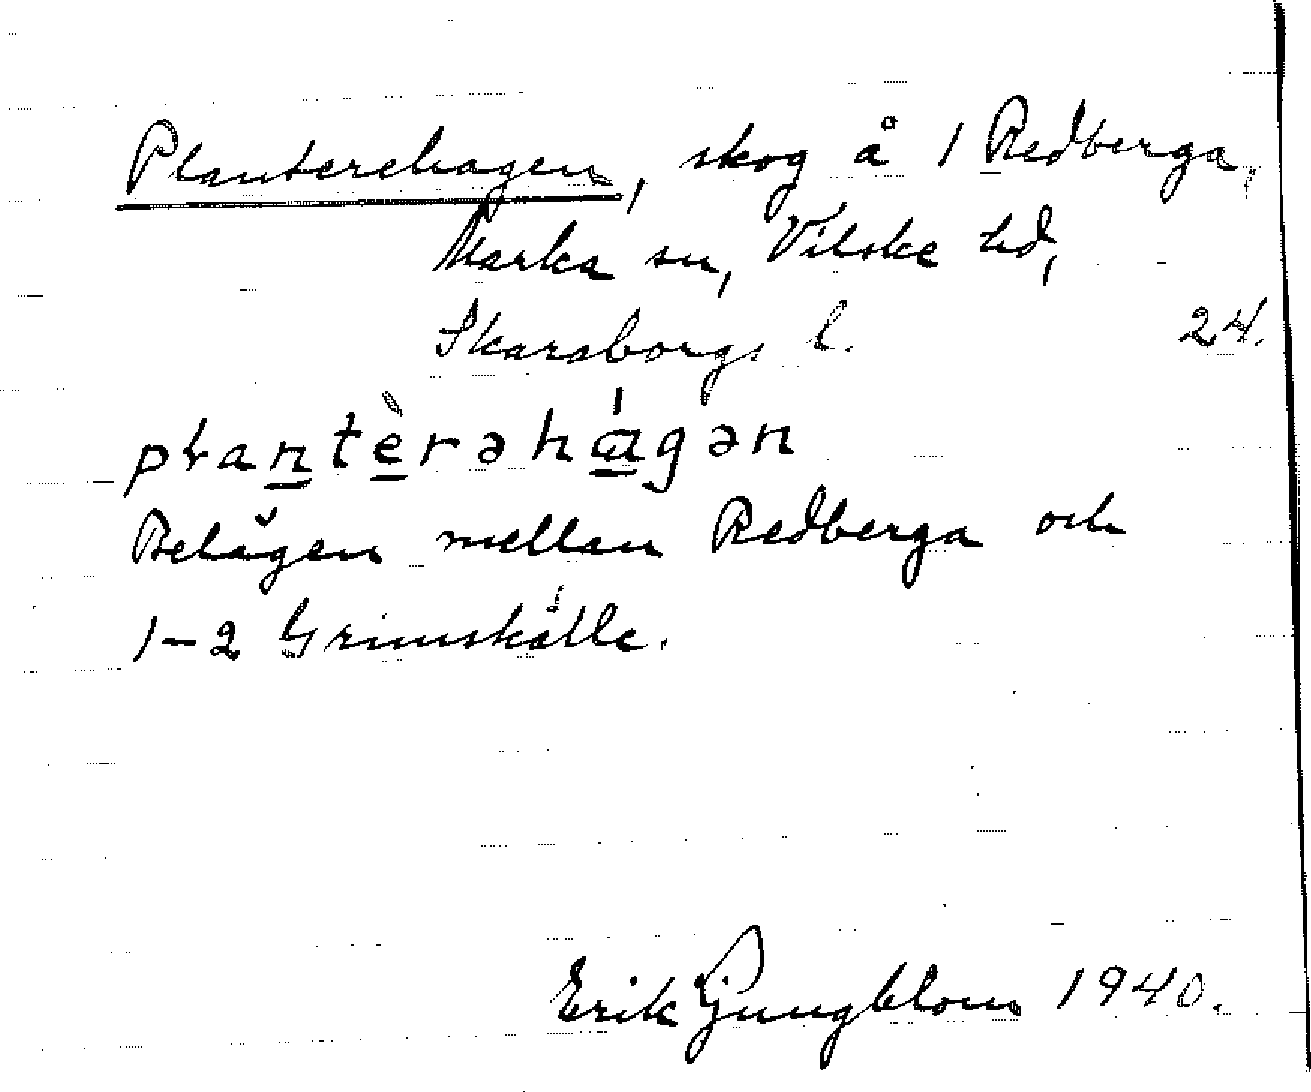 Planterehagen, skog å 1 Redberga,
Marka sn, Vilske hd,
Skaraborgs l. 24.
plantèrəhágən
Belägen mellan Redberga och
1-2 Grimskälle.
Erik Ljungblom 1940.